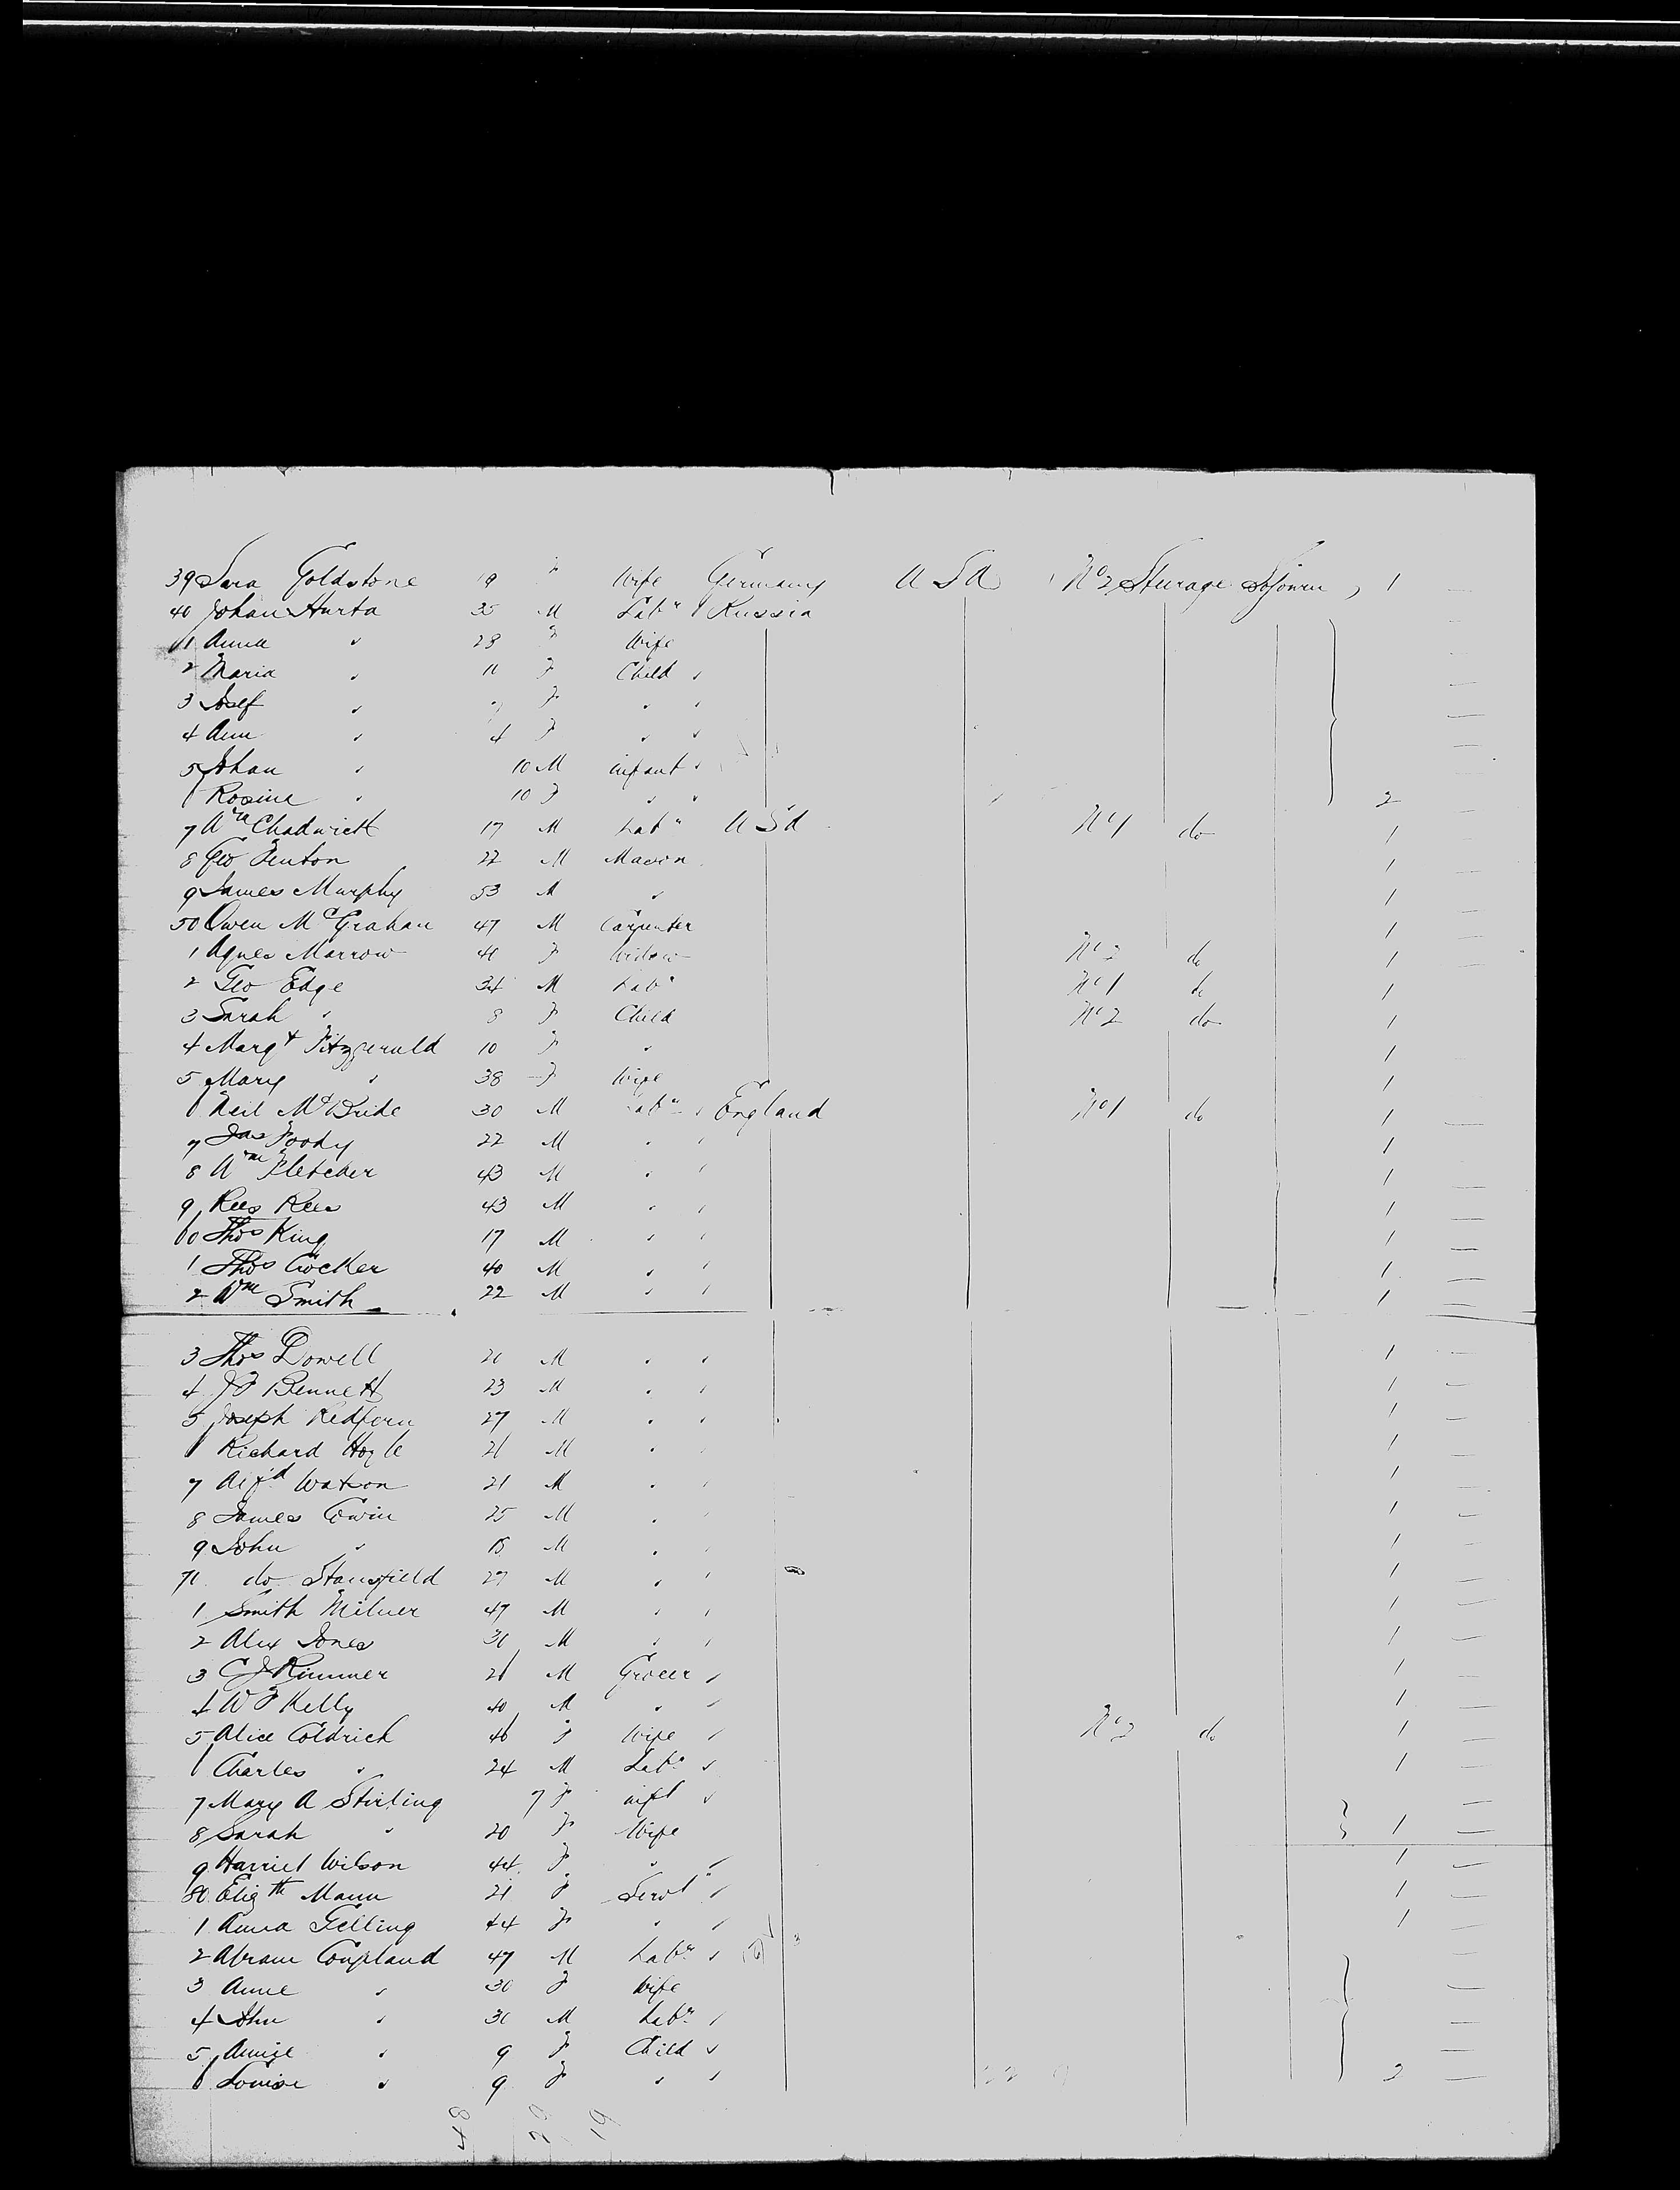 39 Sara Goldstone 19 F Wife Germany U S A No 2 Sturage Sojourn 1
40 Johan Hurta 35 M Labr Russia
41 Anna " 28 F Wife
2 Maria " 11 F Child "
3 Josef " F " "
4 Ann " 4 F " "
5 Johan " 10 M infant "
6 Rosine " 10 F " " 2
7 Wm Chadwick 17 M Labr U S A No 1 do 1
8 Geo Fenton 22 M Mason 1
9 James Murphy 53 M " 1
50 Owen McGrahan 47 M Carpenter 1
1 Agnes Marrow 40 F Widow No 2 do 1
2 Geo Edge 34 M Labr No 1 do 1
3 Sarah " 8 F Child No 2 do 1
4 Margt Fitzgerald 10 F " 1
5 Mary " 38 F Wife 1
6 Neil McBride 30 M Labr " England No 1 do 1
7 Jas Foody 22 M " " 1
8 Wm Fletcher 43 M " " 1
9 Rees Rees 43 M " " 1
60 Thos King 17 M " " 1
1 Thos Crocker 40 M " " 1
2 Wm Smith 22 M " " 1
3 Thos Dowell 20 M " " 1
4 J F Bennett 23 M " " 1
5 Joseph Redfern 27 M " " 1
6 Richard Hoyle 21 M " " 1
7 Alfd Watson 21 M " " 1
8 James Cowin 25 M " " 1
9 John " 18 M " " 1
70 do Stansfield 27 M " " 1
1 Smith Milner 47 M " " 1
2 Alex Jones 30 M " " 1
3 C J Rimmer 21 M Grocer " 1
4 W F Kelly 40 M " " 1
5 Alice Coldrick 46 F Wife " No 2 do 1
6 Charles " 24 M Labr " 1
7 Mary A Stirling 7 F inft "
8 Sarah " 20 F Wife 1
9 Harriet Wilson 44 F " " 1
80 Elizth Mann 21 F Servt " 1
1 Anna Gelling 44 F " " 1
2 Abram Coupland 47 M Labr "
3 Anne " 30 F Wife
4 John " 30 M Labr "
5 Annie " 9 F Child "
6 Louise " 9 F " " 2
48 20 19